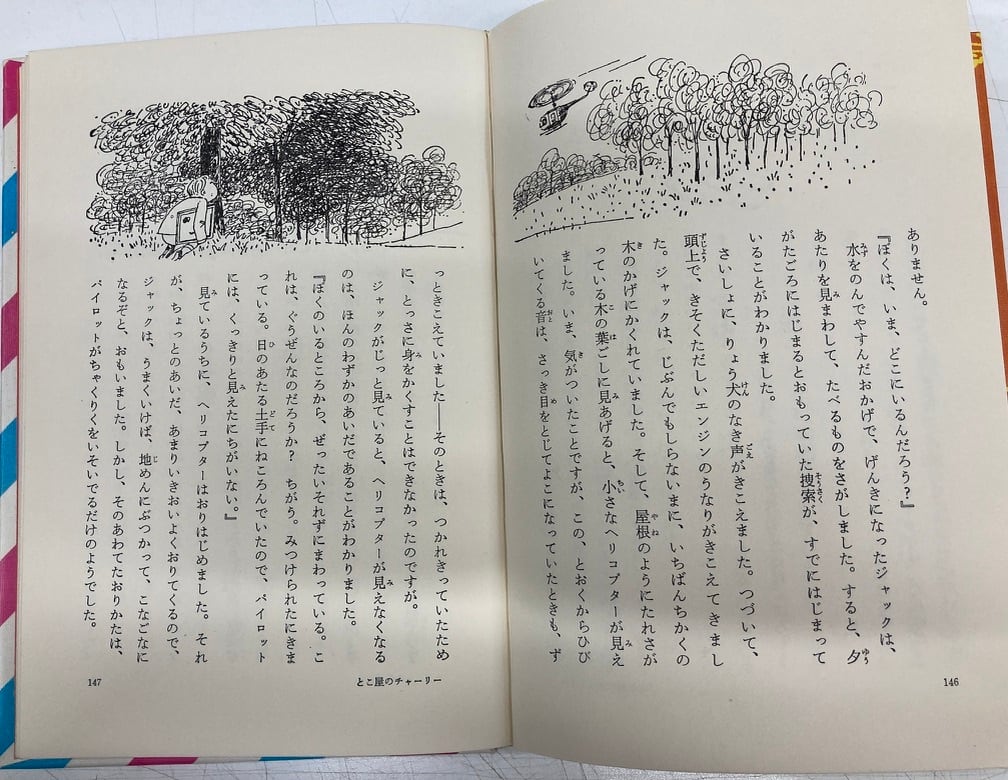 ありません。
『ぼくは、いま、どこにいるんだろう？』
水をのんでやすんだおかげで、げんきになったジャックは、
あたりを見まわして、たべるものをさがしました。すると、夕
がたごろにはじまるとおもっていた捜索が、すでにはじまって
いることがわかりました。
さいしょに、りょう犬のなき声がきこえました。つづいて、
頭上で、きそくただしいエンジンのうなりがきこえてきまし
た。ジャックは、じぶんでもしらないまに、いちばんちかくの
木のかげにかくれていました。そして、屋根のようにたれさが
っている木の葉ごしに見あげると、小さなヘリコプターが見え
ました。いま、気がついたことですが、この、とおくからひび
いてくる音は、さっき目をとじてよこになっていたときも、ず
146
っときこえていました――そのときは、つかれきっていたため
に、とっさに身をかくすことはできなかったのですが。
ジャックがじっと見ていると、ヘリコプターが見えなくなる
のは、ほんのわずかのあいだであることがわかりました。
『ぼくのいるところから、ぜったいそれずにまわっている。こ
れは、ぐうぜんなのだろうか？　ちがう。みつけられたにきま
っている。日のあたる土手にねころんでいたので、パイロット
には、くっきりと見えたにちがいない。』
見ているうちに、ヘリコプターはおりはじめました。それ
が、ちょっとのあいだ、あまりいきおいよくおりてくるので、
ジャックは、うまくいけば、地めんにぶつかって、こなごなに
なるぞと、おもいました。しかし、そのあわてたおりかたは、
パイロットがちゃくりくをいそいでるだけのようでした。
とこ屋のチャーリー
147